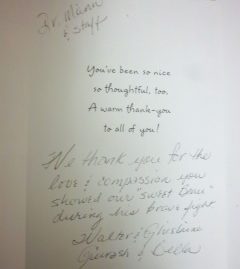 Dr. Mann
& staff
You've been so nice
so thoughtful, too,
A warm thank-you
to all of you!
We thank you for the
love & compassion you
showed our "sweet
during his brave fight
Walter &
& Bella